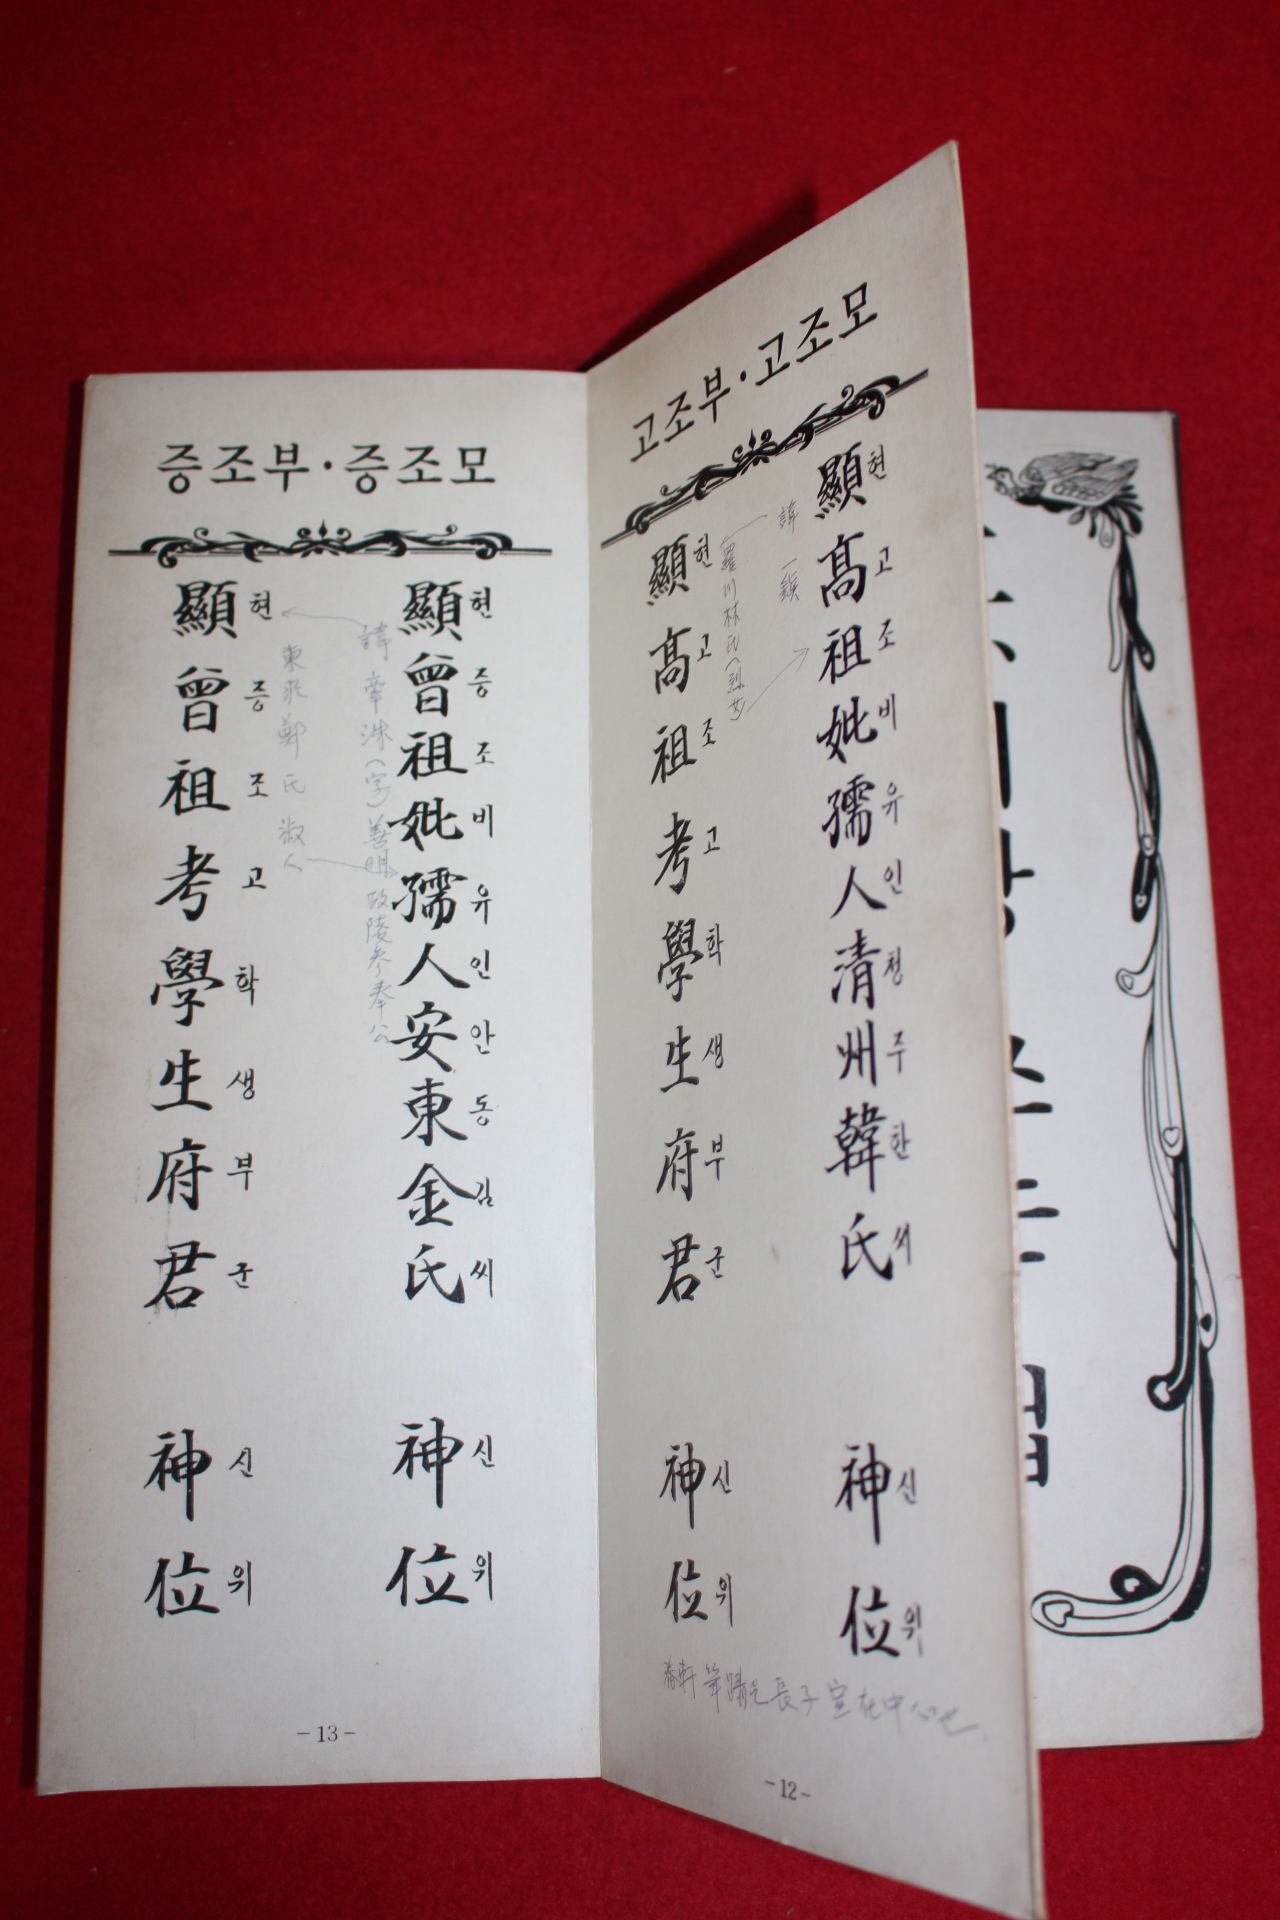 고조부·고조모
顯高祖妣孺人清州韓氏 神位
현고조비유인청주한씨 신위
諱 一
羅川林氏(烈女)
顯高祖考學生府君 神位
현고조고학생부군 신위
長子
-12-
증조부·증조모
顯曾祖妣孺人安東金氏 神位
현증조비유인안동김씨 신위
諱 (字)善明 參奉公
東萊鄭氏 淑人
顯曾祖考學生府君 神位
현증조고학생부군 신위
-13-